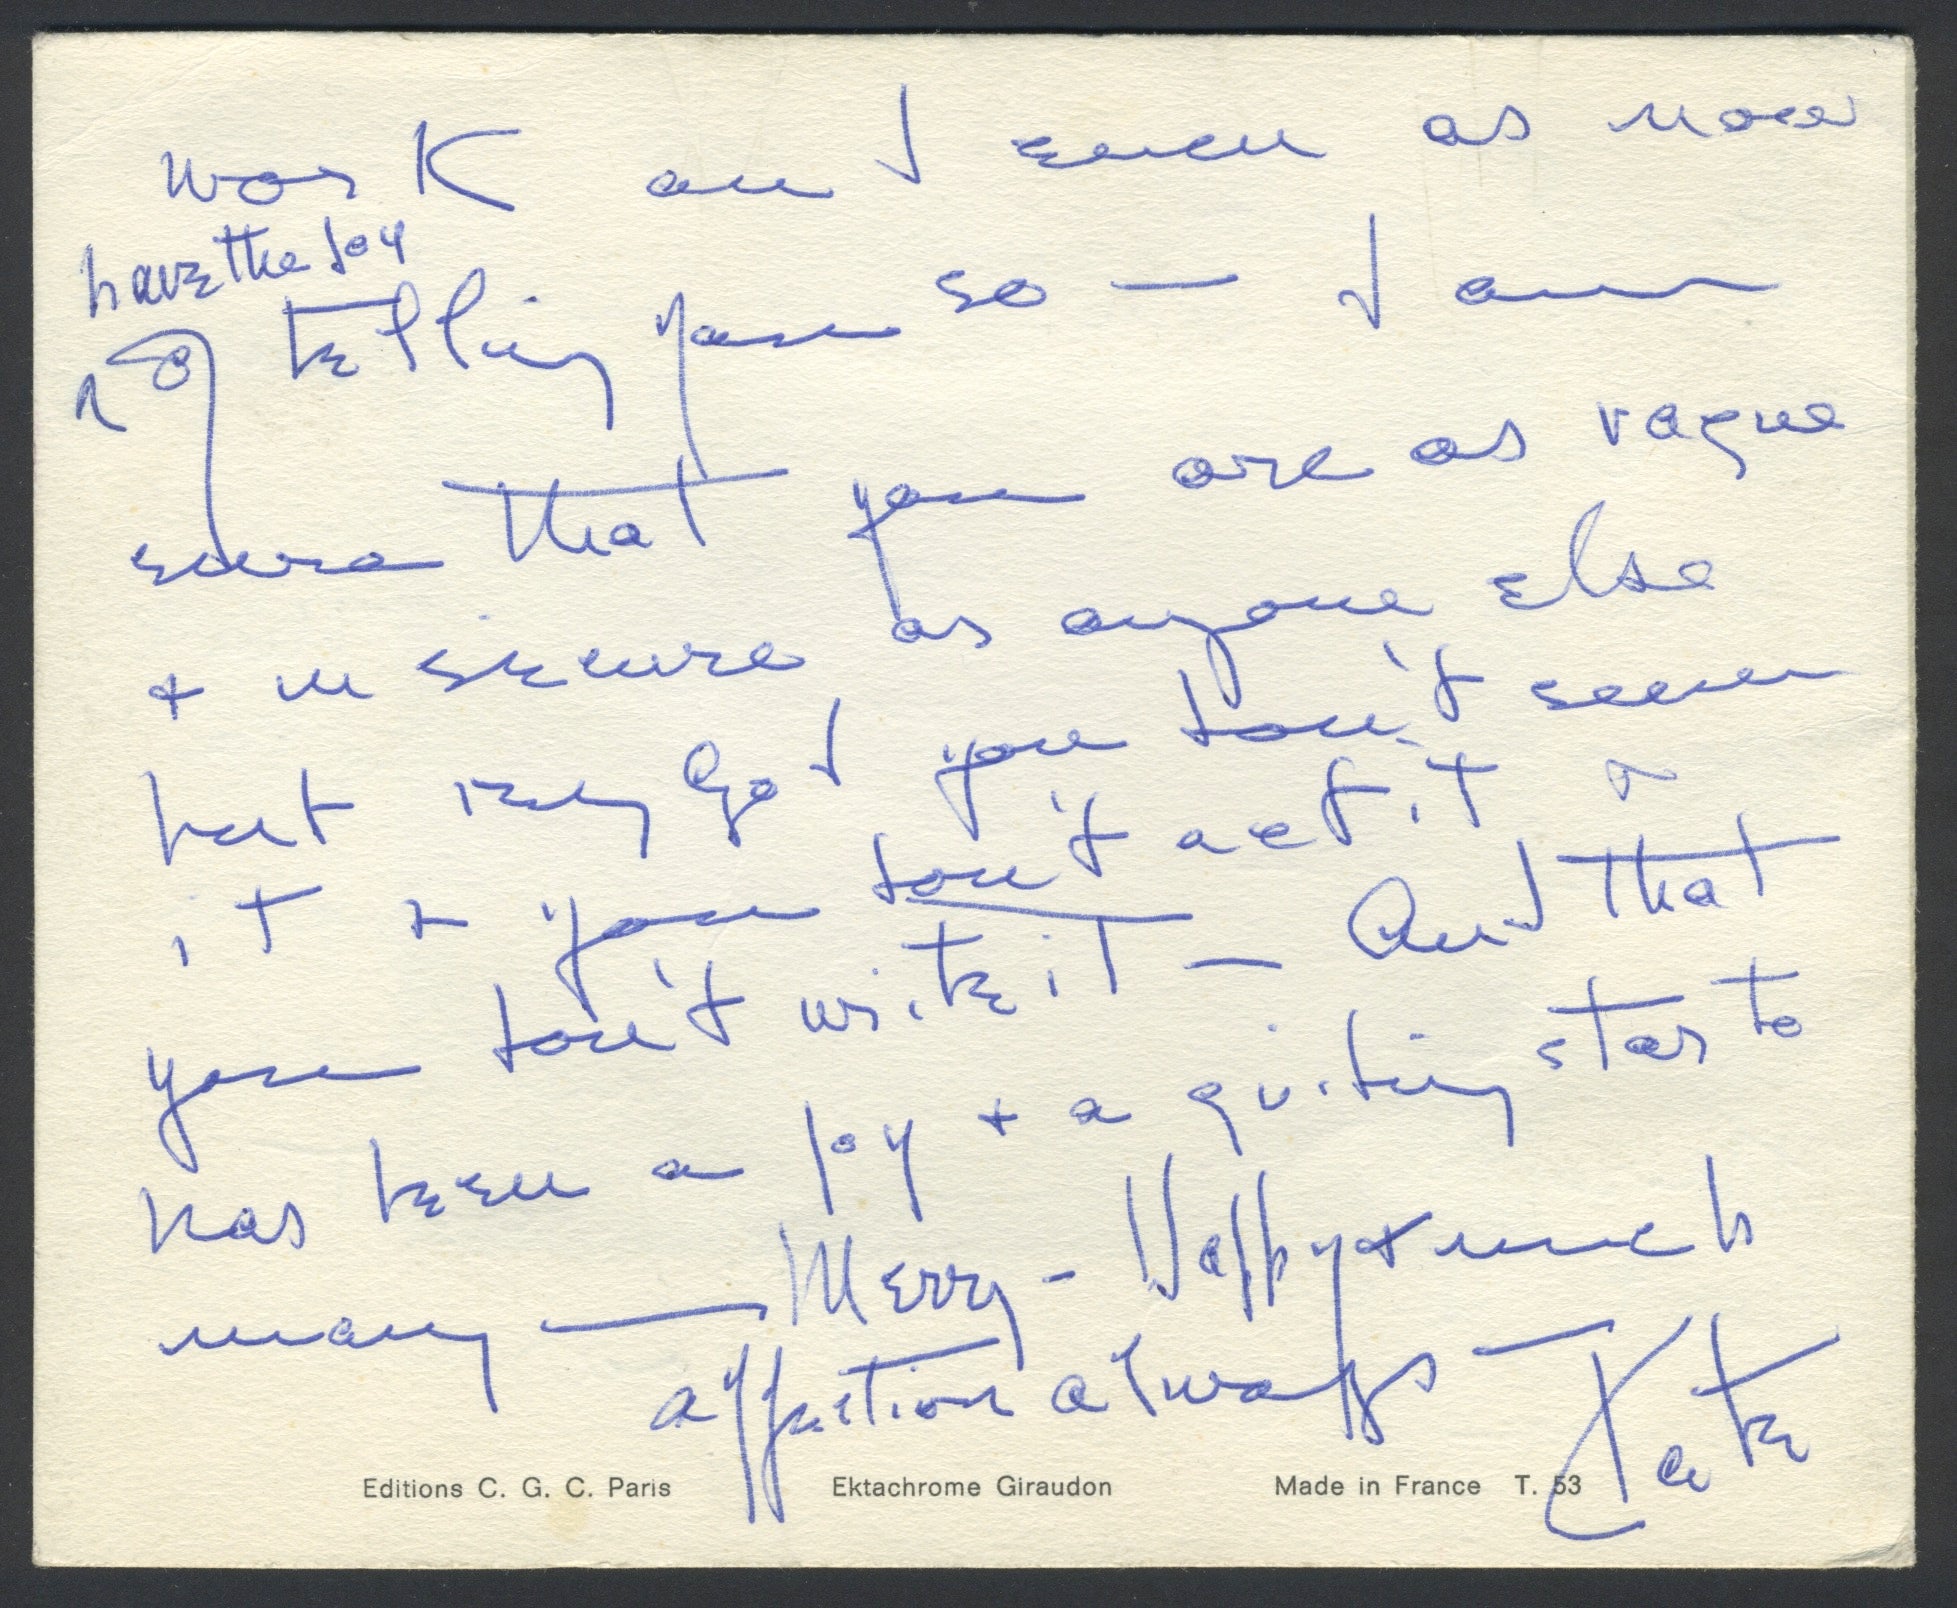 work and even as now
have the joy
of telling you so — I am
sure that you are as vague
+ insecure as anyone else
but my God you don't seem
it + you don't act it
you don't write it — And that
has been a joy + a guiding star to
many — Merry — Happy + much
affection always — Kate
Editions C. G. C. Paris Ektachrome Giraudon Made in France T. 53